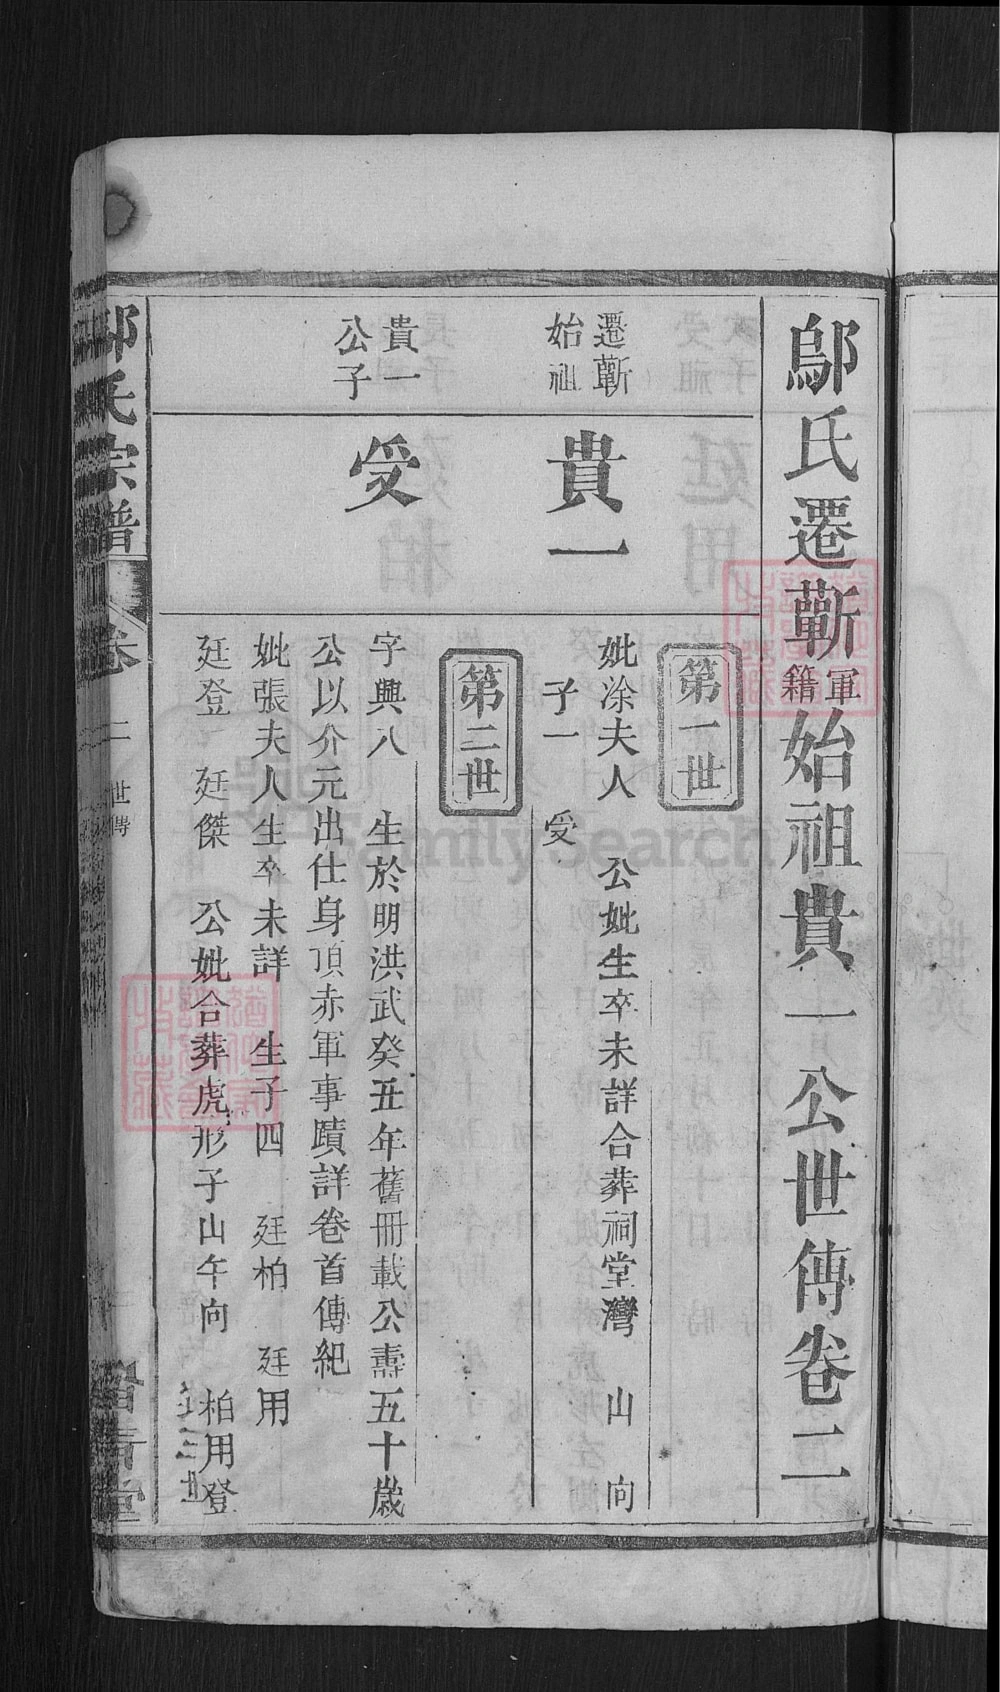 鄔氏遷蘄軍籍始祖貴一公世傳卷二
遷蘄
始祖
貴一
第一世
妣涂夫人 公妣生卒未詳合葬祠堂灣 山 向
子一 受
貴一
公子
受
第二世
字興八 生於明洪武癸丑年舊冊載公壽五十歲
公以介元出仕身頂赤軍事蹟詳卷首傳紀
妣張夫人生卒未詳 生子四 廷柏 廷用
廷登 廷傑 公妣合葬虎形子山午向 柏用登
鄔氏宗譜
卷二 世傳
FamilySearch